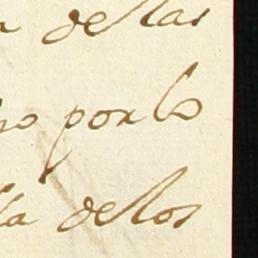 dellas
por lo
la de los